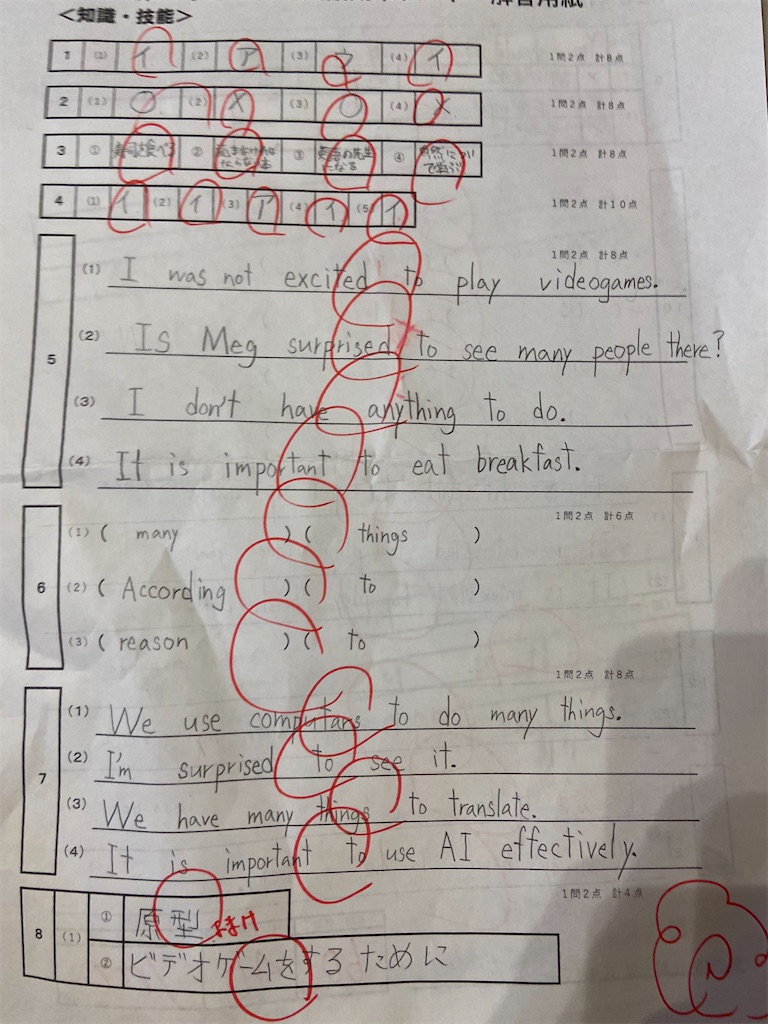 解答用紙
<知識・技能>
1 (1) イ (2) ア (3) ウ (4) イ 1問2点 計8点
2 (1) ○ (2) X (3) ○ (4) X 1問2点 計8点
3 ① 寿司を食べる ② 読まなければならない本 ③ 英語の先生になる ④ 自然について学ぶ 1問2点 計8点
4 (1) イ (2) イ (3) ア (4) イ (5) イ 1問2点 計10点
1問2点 計8点
5
(1) I was not excited to play videogames.
(2) Is Meg surprised to see many people there?
(3) I don't have anything to do.
(4) It is important to eat breakfast.
1問2点 計6点
6
(1) ( many ) ( things )
(2) ( According ) ( to )
(3) ( reason ) ( to )
1問2点 計8点
7
(1) We use computars to do many things.
(2) I'm surprised to see it.
(3) We have many things to translate.
(4) It is important to use AI effectively.
1問2点 計4点
8 (1)
① 原型 おまけ
② ビデオゲームをするために